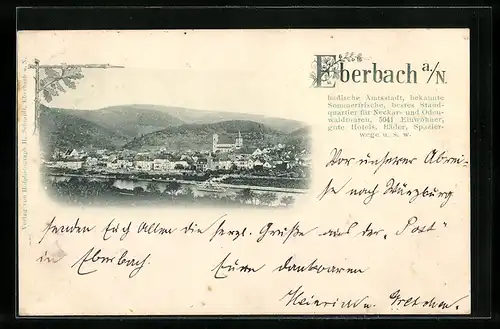 Eberbach a/N.
badische Amtsstadt, bekannte
Sommerfrische, bestes Stand-
quartier für Neckar- und Oden-
waldtouren, 5041 Einwohner,
gute Hotels, Bäder, Spazier-
wege u. s. w.
Vor unserer Abrei-
se nach Würzburg
senden Euch Allen die herzl. Grüße aus der „Post"
in Eberbach.
Eure dankbaren
Heinrich u. Gretchen.
Verlag von
Eberbach a. N.